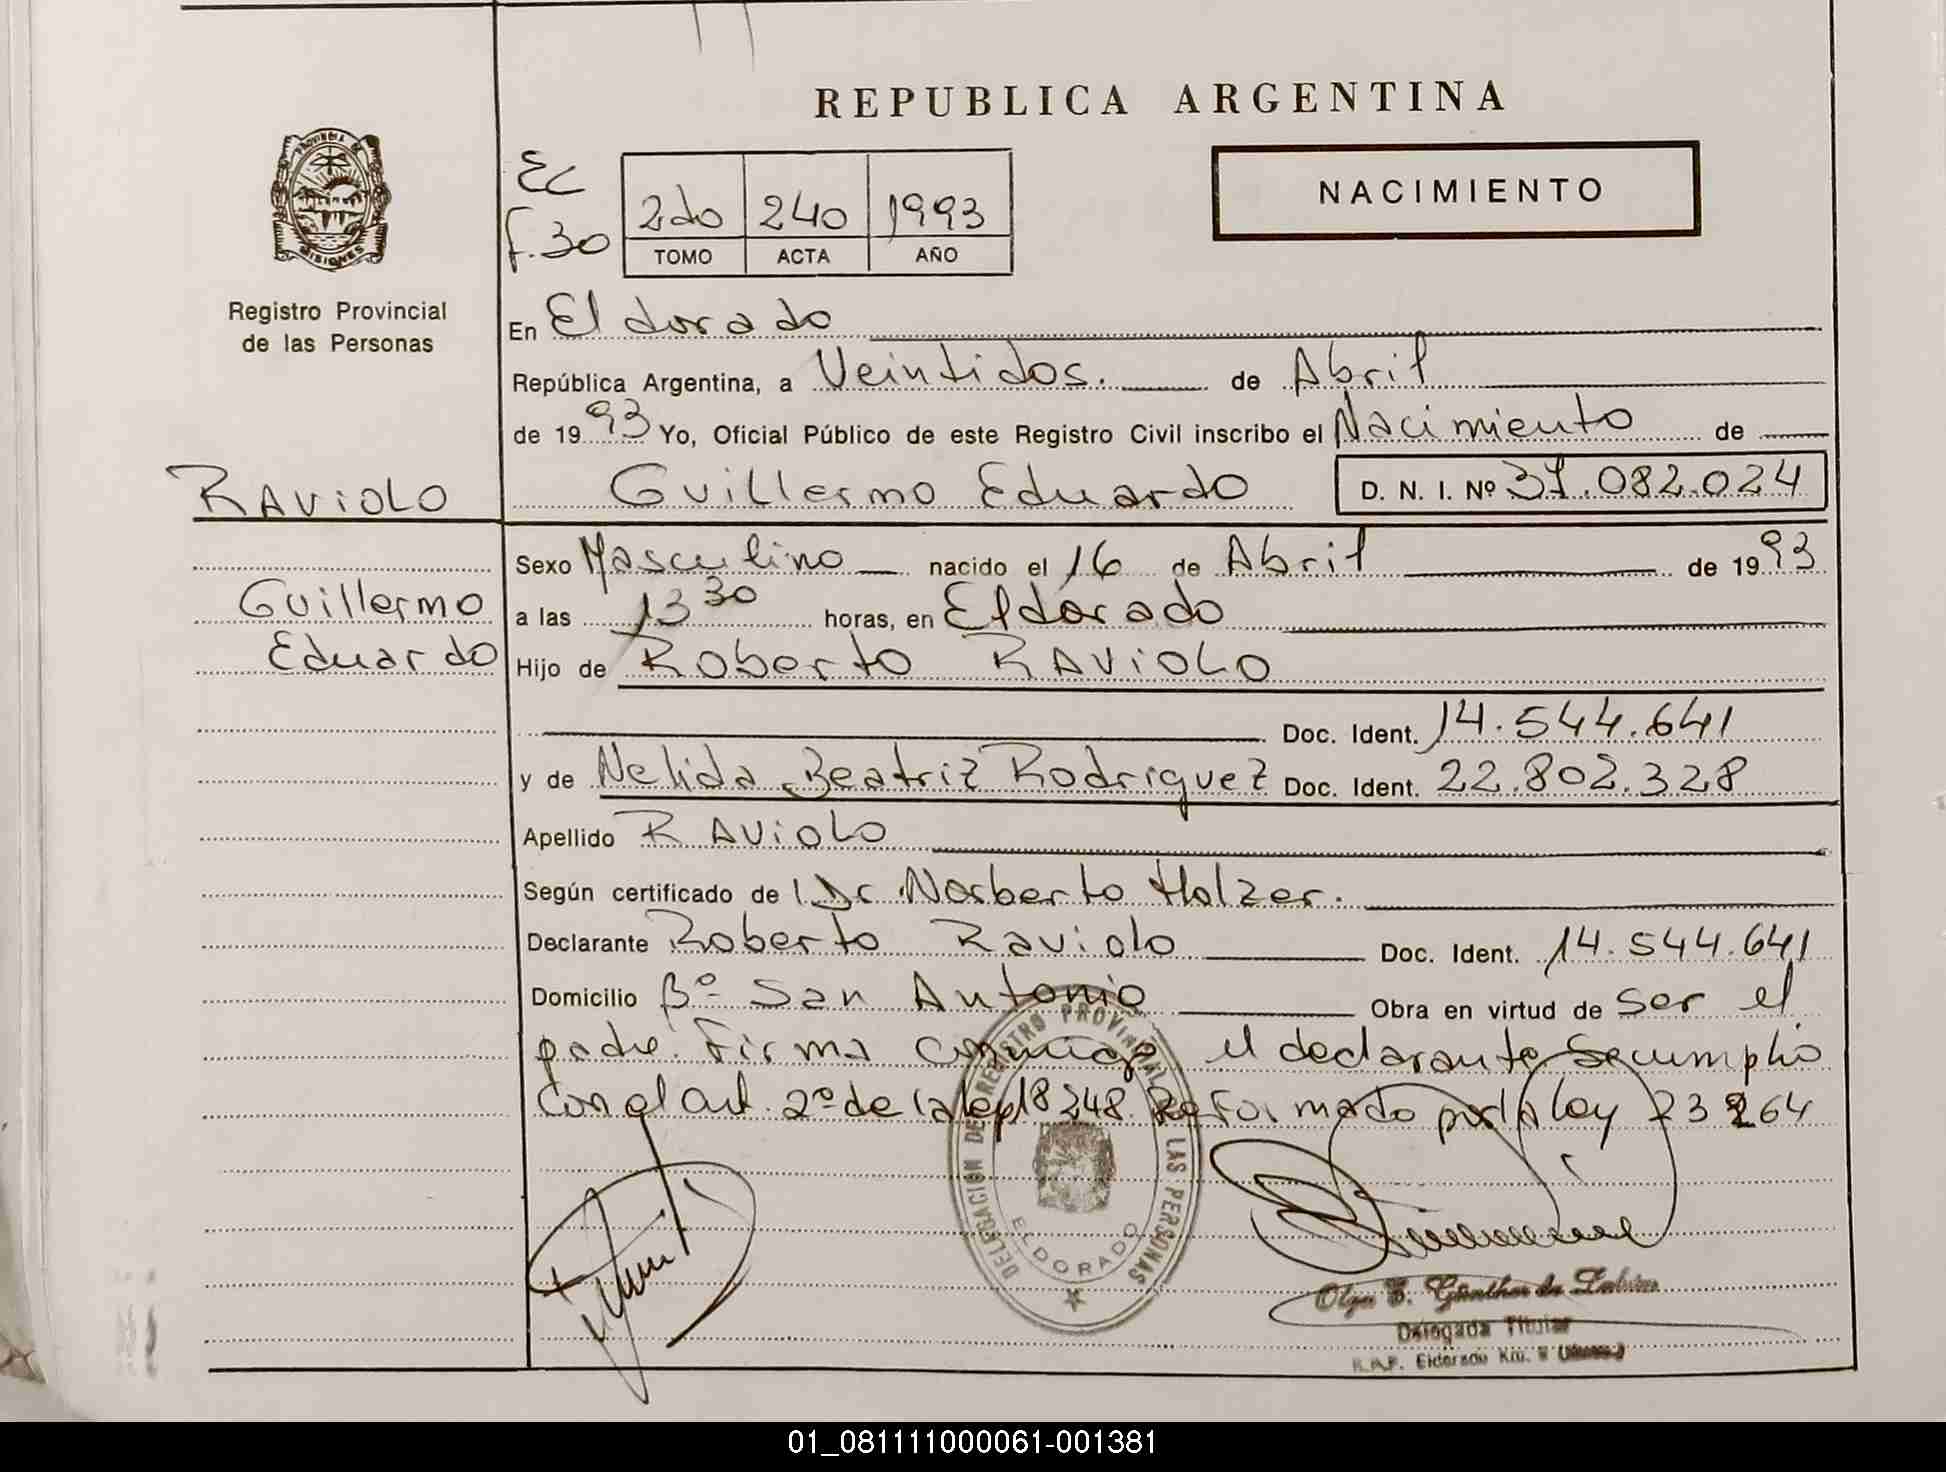 REPUBLICA ARGENTINA
PROVINCIA DE
MISIONES
Registro Provincial
de las Personas
EC
F.30
2do 240 1993
TOMO ACTA AÑO
NACIMIENTO
En Eldorado
República Argentina, a Veintidos. de Abril
de 1993 Yo, Oficial Público de este Registro Civil inscribo el Nacimiento de
RAVIOLO
Guillermo Eduardo D. N. I. Nº 37.082.024
Sexo Masculino nacido el 16 de Abril de 1993
Guillermo
a las 13 30 horas, en Eldorado
Eduardo
Hijo de Roberto RAVIOLO
Doc. Ident. 14.544.641
y de Nelida Beatriz Rodriguez Doc. Ident. 22.802.328
Apellido RAVIOLO
Según certificado de Dr. Norberto Holzer.
Declarante Roberto Raviolo Doc. Ident. 14.544.641
Domicilio Bº San Antonio Obra en virtud de ser el
padre. Firma conmigo el declarante Se cumplio
Con el Art. 2º de la ley 18248 Reformado por la ley 23264
DELEGACION DE REGISTRO PROVINCIAL LAS PERSONAS
ELDORADO
Olga E. Günther de
Delegada Titular
Eldorado Km.
01_081111000061-001381